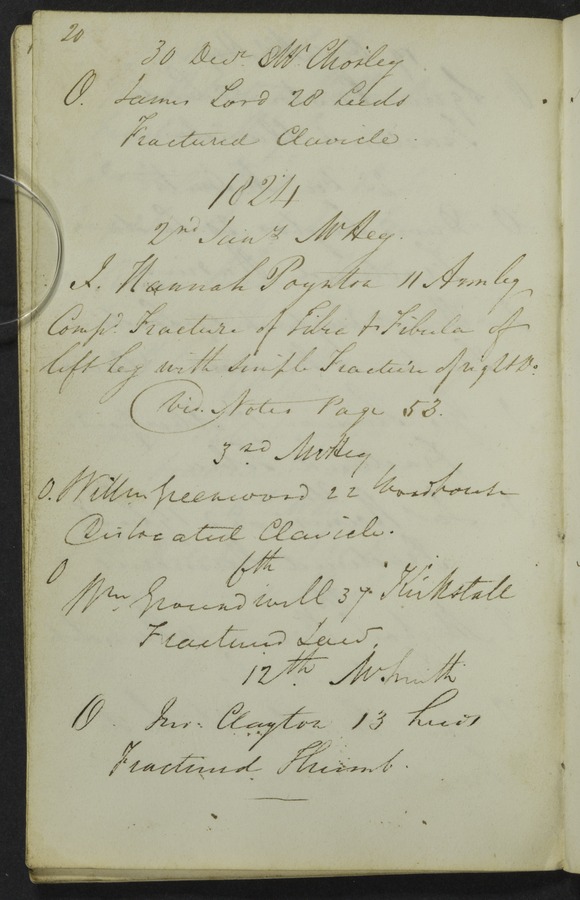 20
30 Decr. Mr. Chorley
O. James Lord 28 Leeds
Fractured Clavicle.
1824
2nd Jany Mr Hey.
I. Hannah Poynton 11 Armley
Compd. Fracture of Tibia & Fibula of
left leg with simple Fracture of right Do.
Vid. Notes Page 53.
3rd Mr Hey
O. Willm Greenwood 22 Woodhouse
Dislocated Clavicle.
6th
O Wm Groundwell 37 Kirkstall
Fractured Jaw.
12th Mr Smith
O. Jno. Clayton 13 Leeds
Fractured Thumb.